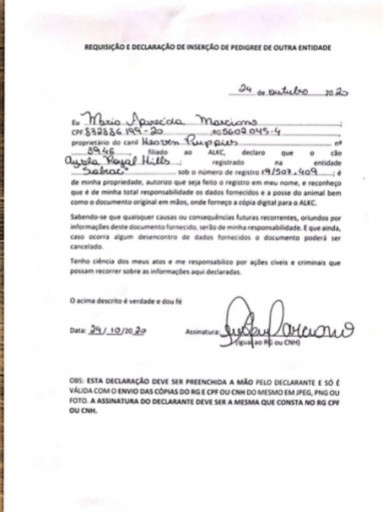 REQUISIÇÃO E DECLARAÇÃO DE INSERÇÃO DE PEDIGREE DE OUTRA ENTIDADE
24 de outubro 2020
Eu Maria Aparecida Marciano
CPF 832886.199-20 RG5602.045-4
proprietário do canil Heaven Puppies nº
8946 filiado ao ALKC, declaro que o cão
Ayala Royal Hills registrado na entidade
Sobraci sob o número de registro 19/507.409 ; é
de minha propriedade, autorizo que seja feito o registro em meu nome, e reconheço
que é de minha total responsabilidade os dados fornecidos e a posse do animal bem
como o documento original em mãos, onde forneço a cópia digital para o ALKC.
Sabendo-se que quaisquer causas ou consequências futuras recorrentes, oriundos por
informações deste documento fornecido, serão de minha responsabilidade. E que ainda,
caso ocorra algum desencontro de dados fornecidos o documento poderá ser
cancelado.
Tenho ciência dos meus atos e me responsabilizo por ações cíveis e criminais que
possam recorrer sobre as informações aqui declaradas.
O acima descrito é verdade e dou fé
Data: 24/10/2020 Assinatura: Marciano
(igual ao RG ou CNH)
OBS: ESTA DECLARAÇÃO DEVE SER PREENCHIDA A MÃO PELO DECLARANTE E SÓ É
VÁLIDA COM O ENVIO DAS CÓPIAS DO RG E CPF OU CNH DO MESMO EM JPEG, PNG OU
FOTO. A ASSINATURA DO DECLARANTE DEVE SER A MESMA QUE CONSTA NO RG CPF
OU CNH.